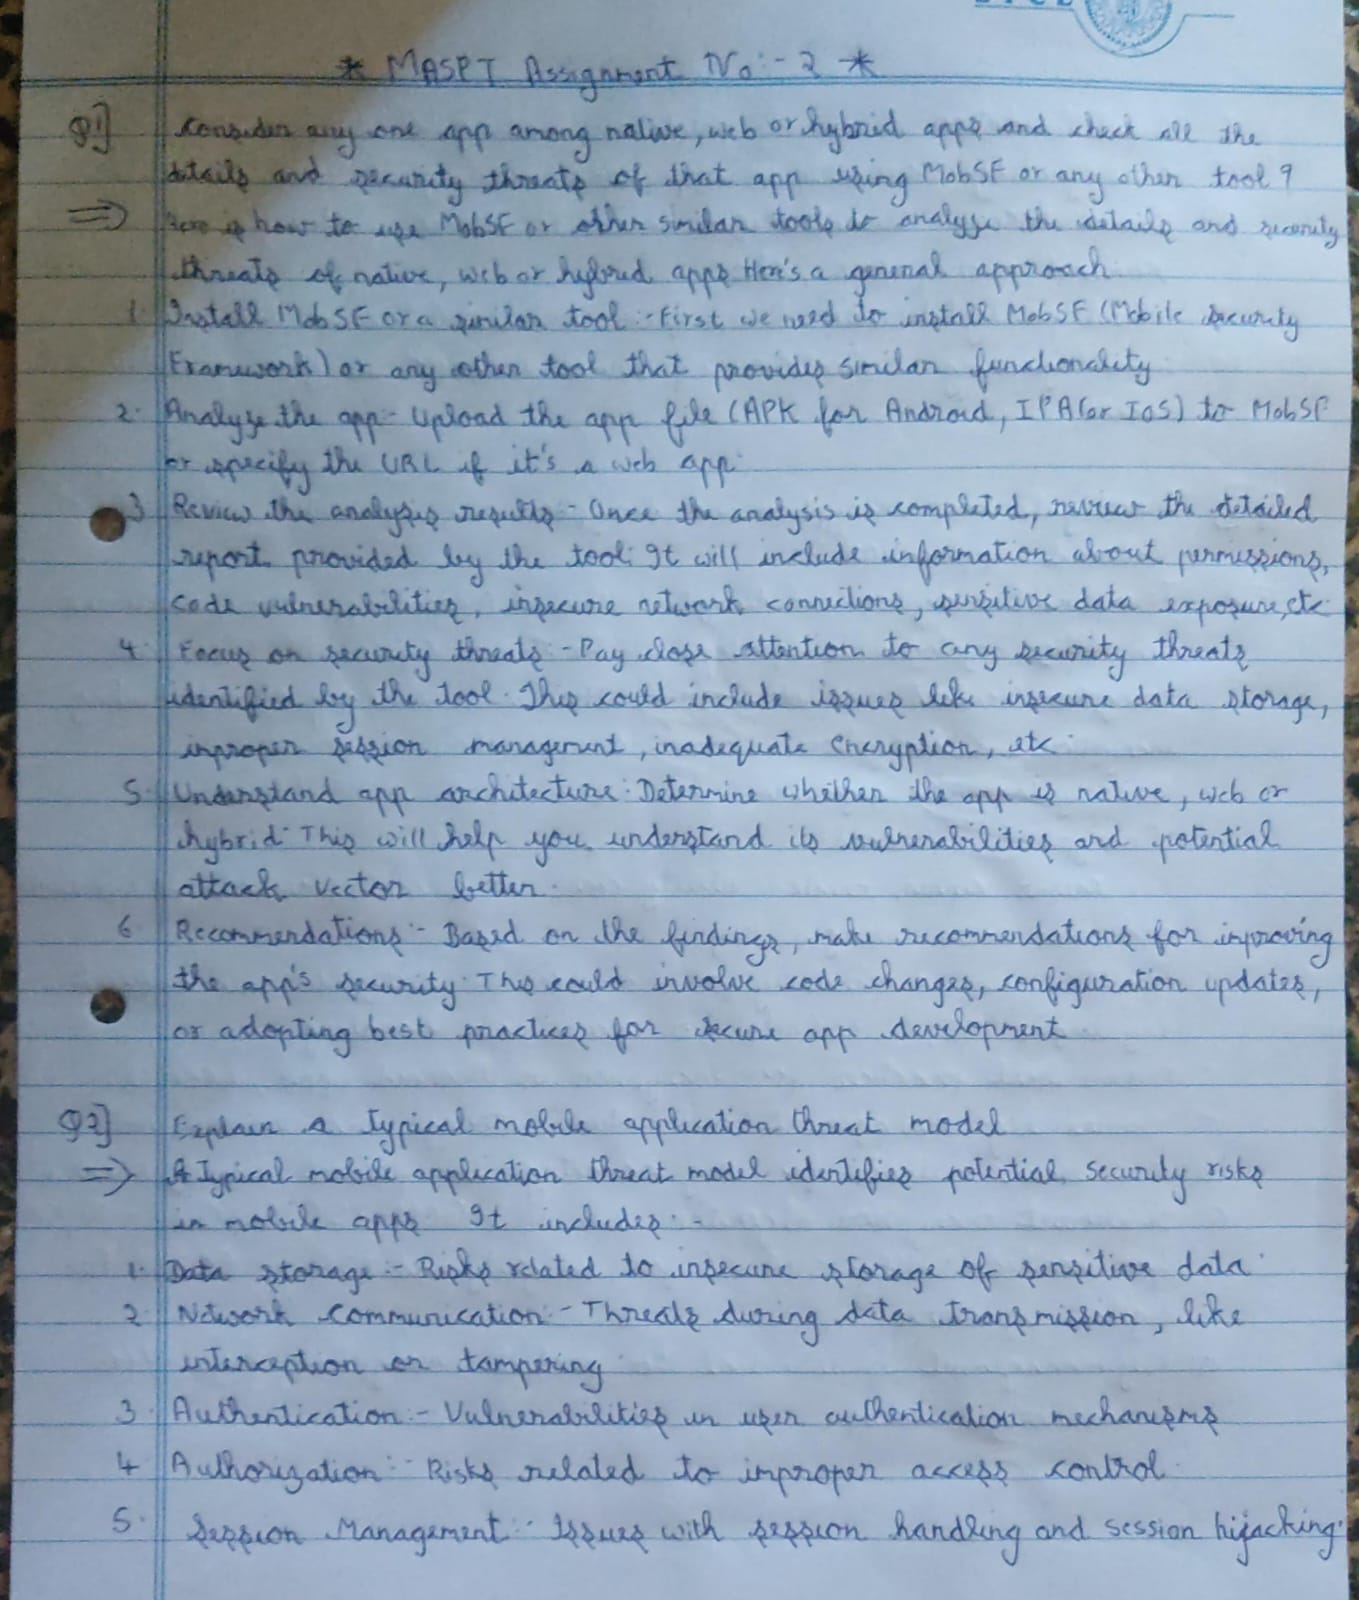 * MASPT Assignment No:- 2 *
Q1] Consider any one app among native, web or hybrid apps and check all the
details and security threats of that app using MobSF or any other tool ?
=> Here is how to use MobSF or other similar tools to analyze the details and security
threats of native, web or hybrid apps Here's a general approach
1. Install MobSF or a similar tool :- First we need to install MobSF (Mobile Security
Framework) or any other tool that provides similar functionality
2. Analyze the app - Upload the app file (APK for Android, IPA for IOS) to MobSF
or specify the URL if it's a web app.
3 Review the analysis results - Once the analysis is completed, review the detailed
report provided by the tool. It will include information about permissions,
code vulnerabilities, insecure network connections, sensitive data exposure, etc
4. Focus on security threats :- Pay close attention to any security threats
identified by the tool. This could include issues like insecure data storage,
improper session management, inadequate encryption, etc.
5. Understand app architecture : Determine whether the app is native, web or
hybrid. This will help you understand its vulnerabilities and potential
attack vector better.
6 Recommendations :- Based on the findings, make recommendations for improving
the app's security. This could involve code changes, configuration updates,
or adopting best practices for secure app development
Q2] Explain a typical mobile application threat model
=> A Typical mobile application threat model identifies potential security risks
in mobile apps It includes :-
1. Data storage :- Risks related to insecure storage of sensitive data.
2 Network Communication :- Threats during data transmission, like
interception or tampering
3 Authentication :- Vulnerabilities in user authentication mechanisms
4 Authorization :- Risks related to improper access control.
5. Session Management :- Issues with session handling and session hijacking.